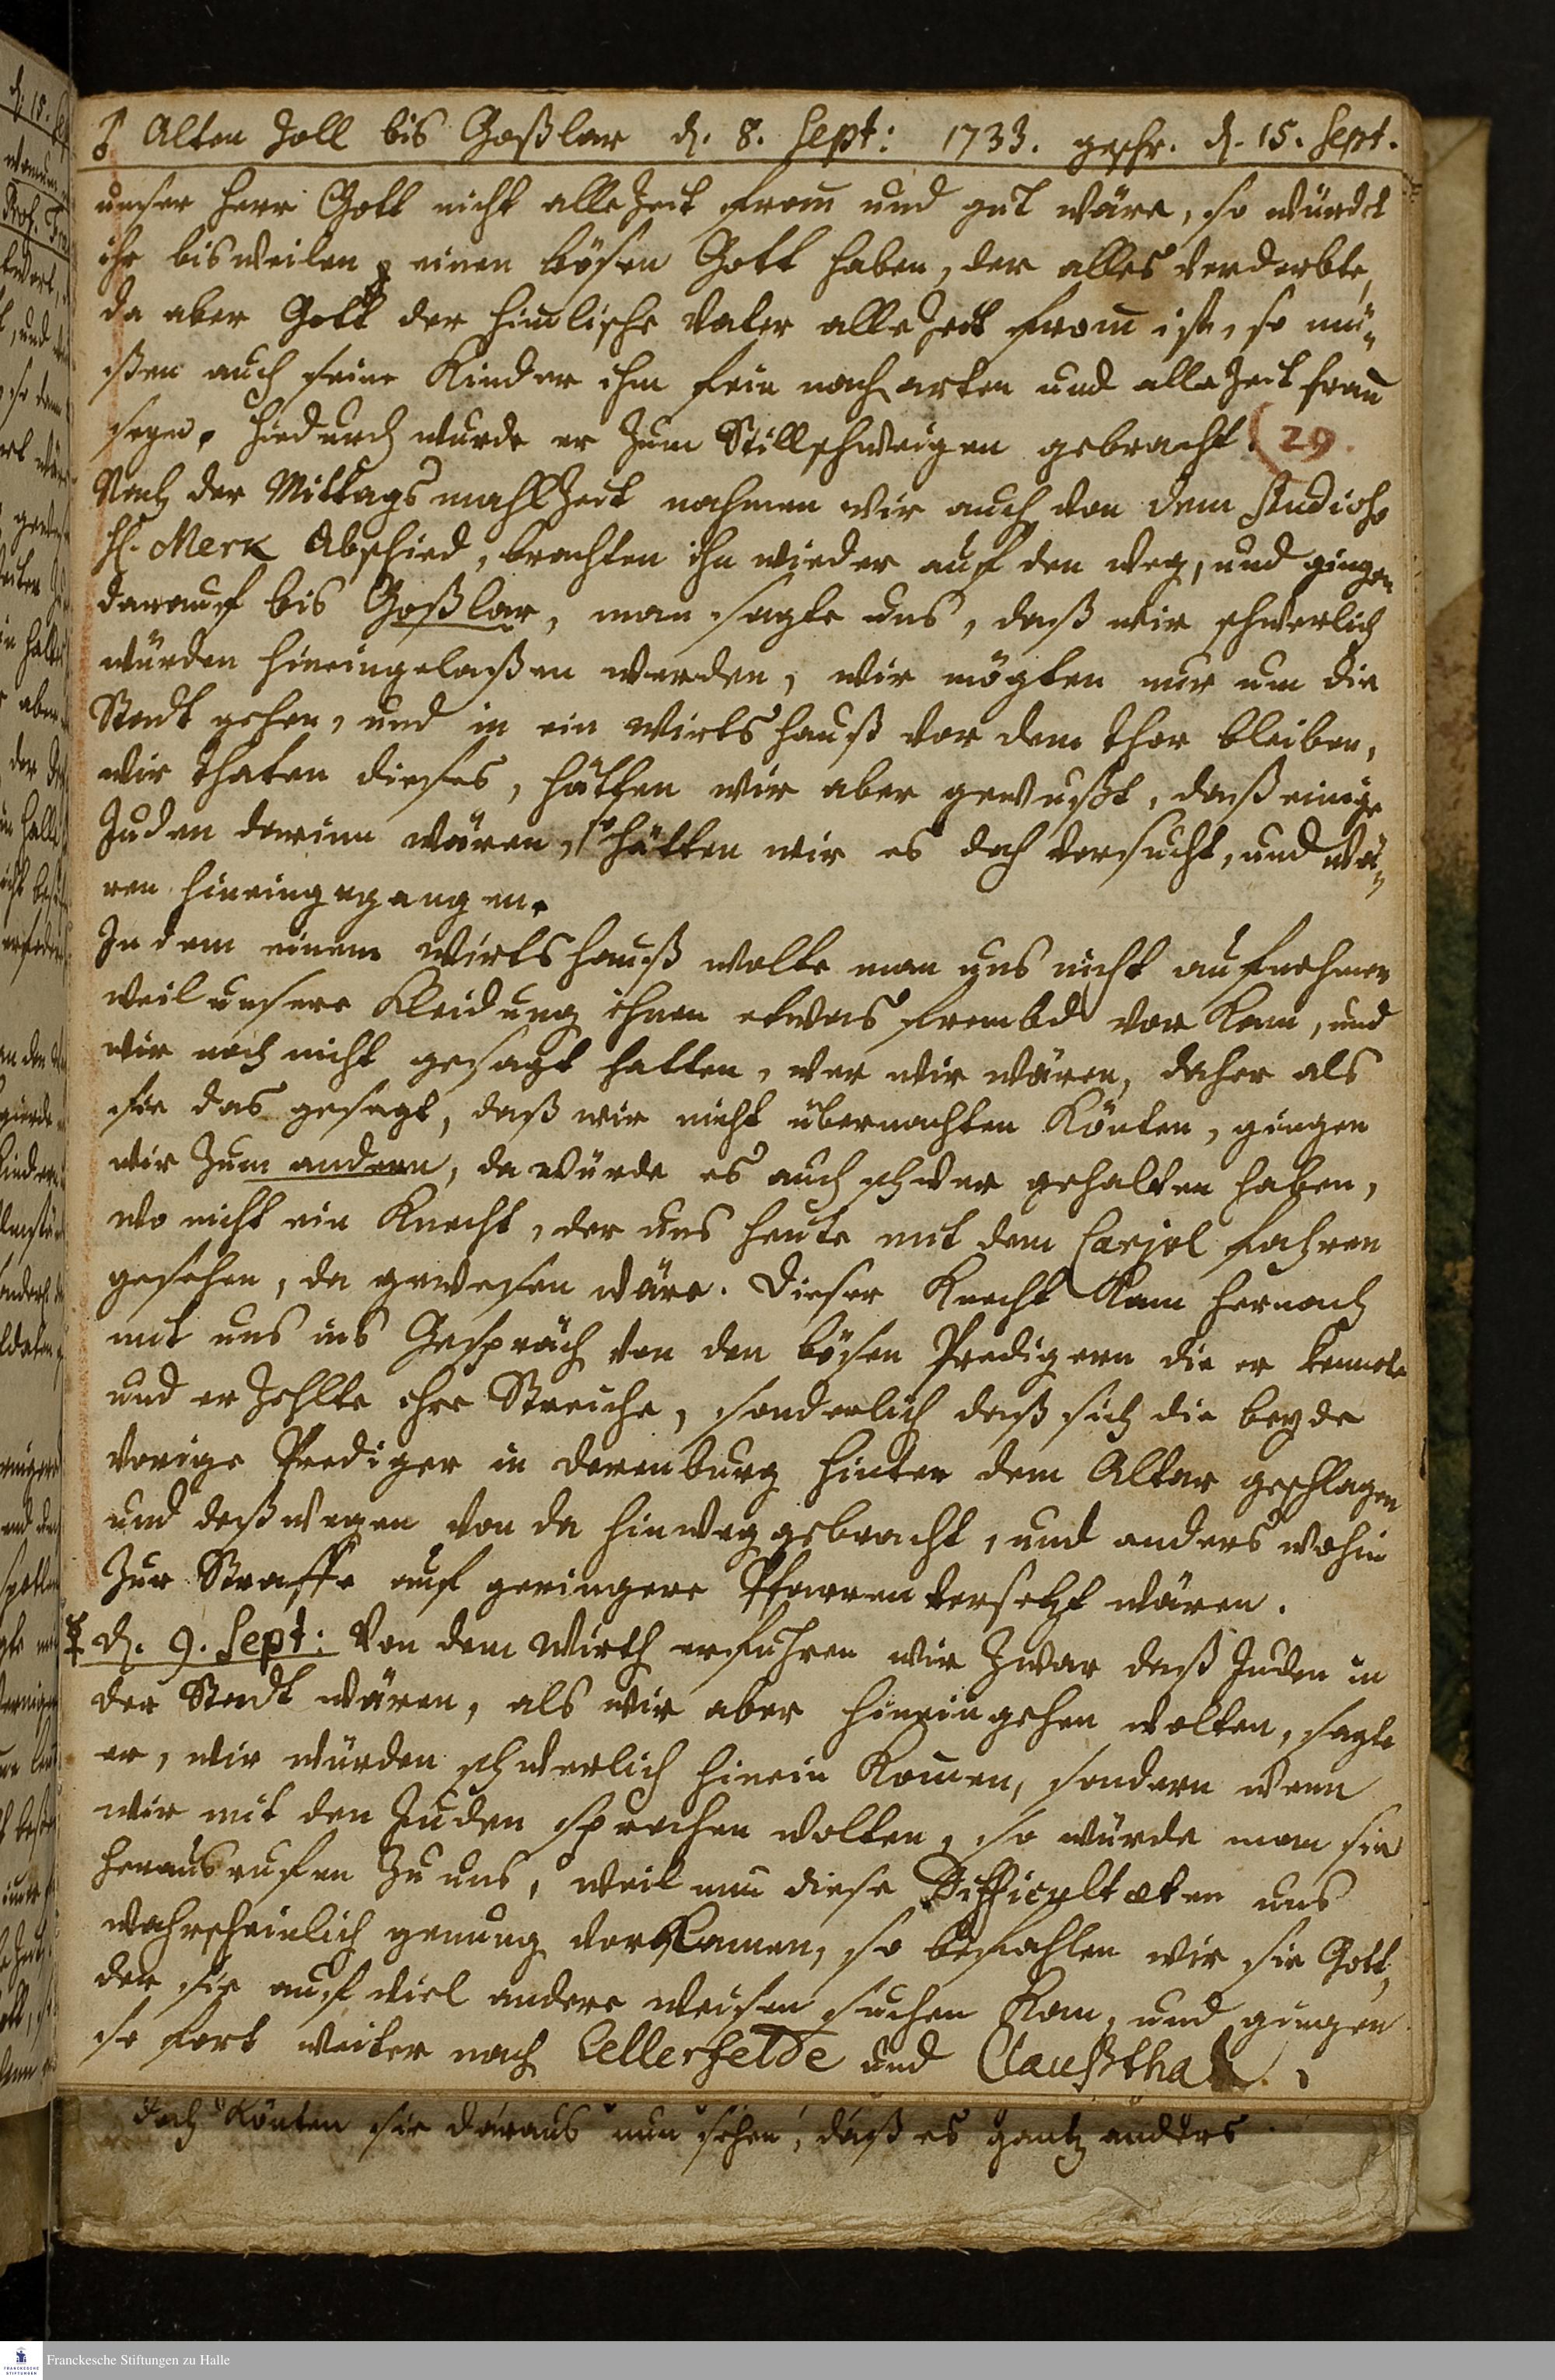 ♂ Alten Zoll bis Goßlar d. 8. Sept: 1733. geschr. d. 15. Sept.
unser Herr Gott nicht allezeit from̅ und gut wäre, so würdet
ihr bisweilen einen bösen Gott haben, der alles verderbte,
da aber Gott der him̅lische Vater allezeit from̅ ist, so mü-
ßen auch seine Kinder ihm fein nach arten und allezeit from̅
seyn. Hiedurch wurde er zum Stillschweigen gebracht. (29.
Nach der Mittagsmahlzeit nahmen wir auch von dem Studioso
H. Merk Abschied, brachten ihn wieder auf den Weg, und gingen
darauf bis Goßlar, man sagte uns, daß wir schwerlich
würden hineingelaßen werden, wir mögten nur um die
Stadt gehen, und in ein Wirtshauß vor dem Thor bleiben,
wir thaten dieses, hätten wir aber gewußt, daß einige
Juden darinn wären, so hätten wir es doch versucht, und wä-
ren hineingegangen.
In dem einem Wirtshauß wolte man uns nicht aufnehmen
weil unsere Kleidung ihnen etwas frembd vor kam, und
wir noch nicht gesagt hatten, wer wir wären, daher als
sie das gesagt, daß wir nicht übernachten könten, gingen
wir zum andern, da würde es auch schwer gehalten haben,
wo nicht ein Knecht, der uns heute mit dem Carjol fahren
gesehen, da gewesen wäre. Dieser Knecht kam hernach
mit uns ins Gespräch von den bösen Predigern die er kennete
und erzehlte ihre Streiche, sonderlich daß sich die beyde
vorige Prediger in Derenburg hinter dem Altar geschlagen
und deßwegen von da hinweggebracht, und anders wohin
zur Straffe auf geringere Pfarren versetzt wären.
☿ d. 9. Sept: Von dem Wirth erfuhren wir zwar daß Juden in
der Stadt wären, als wir aber hineingehen wolten, sagte
er, wir würden schwerlich hinein kom̅en, sondern wenn
wir mit den Juden sprechen wolten, so würde man sie
herausrufen zu uns, weil nun diese Difficultæten uns
wahrscheinlich genung vorkamen, so befahlen wir sie Gott,
der sie auf viel andere Weisen suchen kan, und gingen
so fort weiter nach Cellerfelde und Claußthal.
doch könten sie daraus nun sehen, daß es gantz anders
Franckesche Stiftungen zu Halle